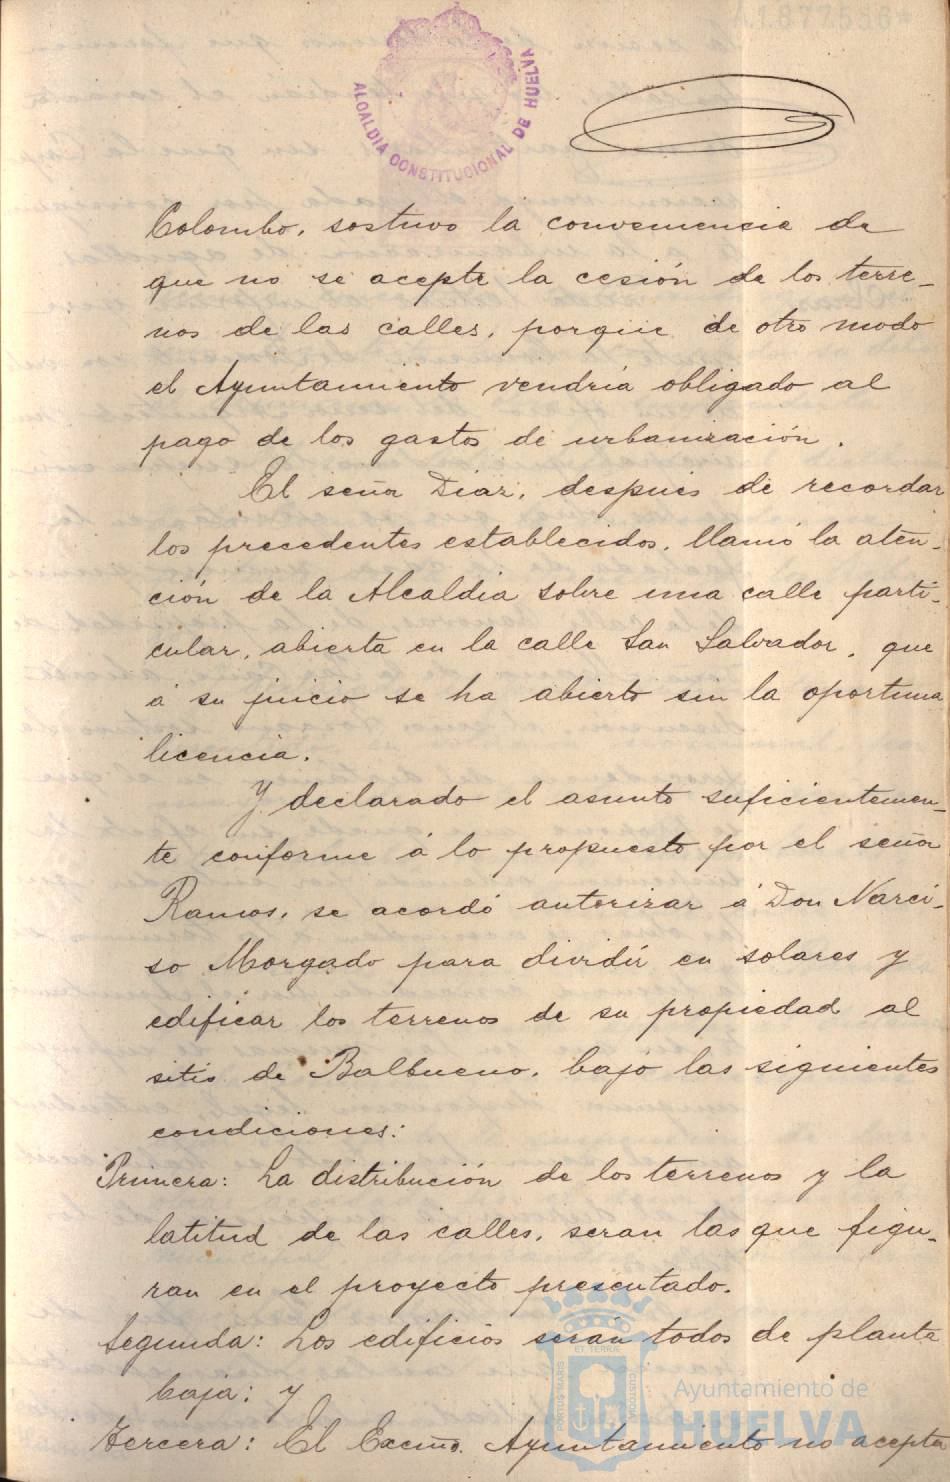 A.1877.556*
ALCALDIA CONSTITUCIONAL DE HUELVA
Colombo, sostuvo la conveniencia de
que no se acepte la cesión de los terre-
nos de las calles, porque de otro modo
el Ayuntamiento vendría obligado al
pago de los gastos de urbanización.
El señor Diaz, despues de recordar
los precedentes establecidos, llamó la aten-
ción de la Alcaldia sobre una calle parti-
cular, abierta en la calle San Salvador, que
á su juicio se ha abierto sin la oportuna
licencia.
Y declarado el asunto suficientemen-
te conforme á lo propuesto por el señor
Ramos, se acordó autorizar á Don Narci-
so Morgado para dividir en solares y
edificar los terrenos de su propiedad al
sitio de Balbueno, bajo las siguientes
condiciones:
Primera: La distribución de los terrenos y la
latitud de las calles, seran las que figu-
ran en el proyecto presentado.
Segunda: Los edificios seran todos de planta
baja: y
Tercera: El Excmo. Ayuntamiento no acepta
PORTUS MARIS ET TERRÆ CUSTODIA
Ayuntamiento de
HUELVA